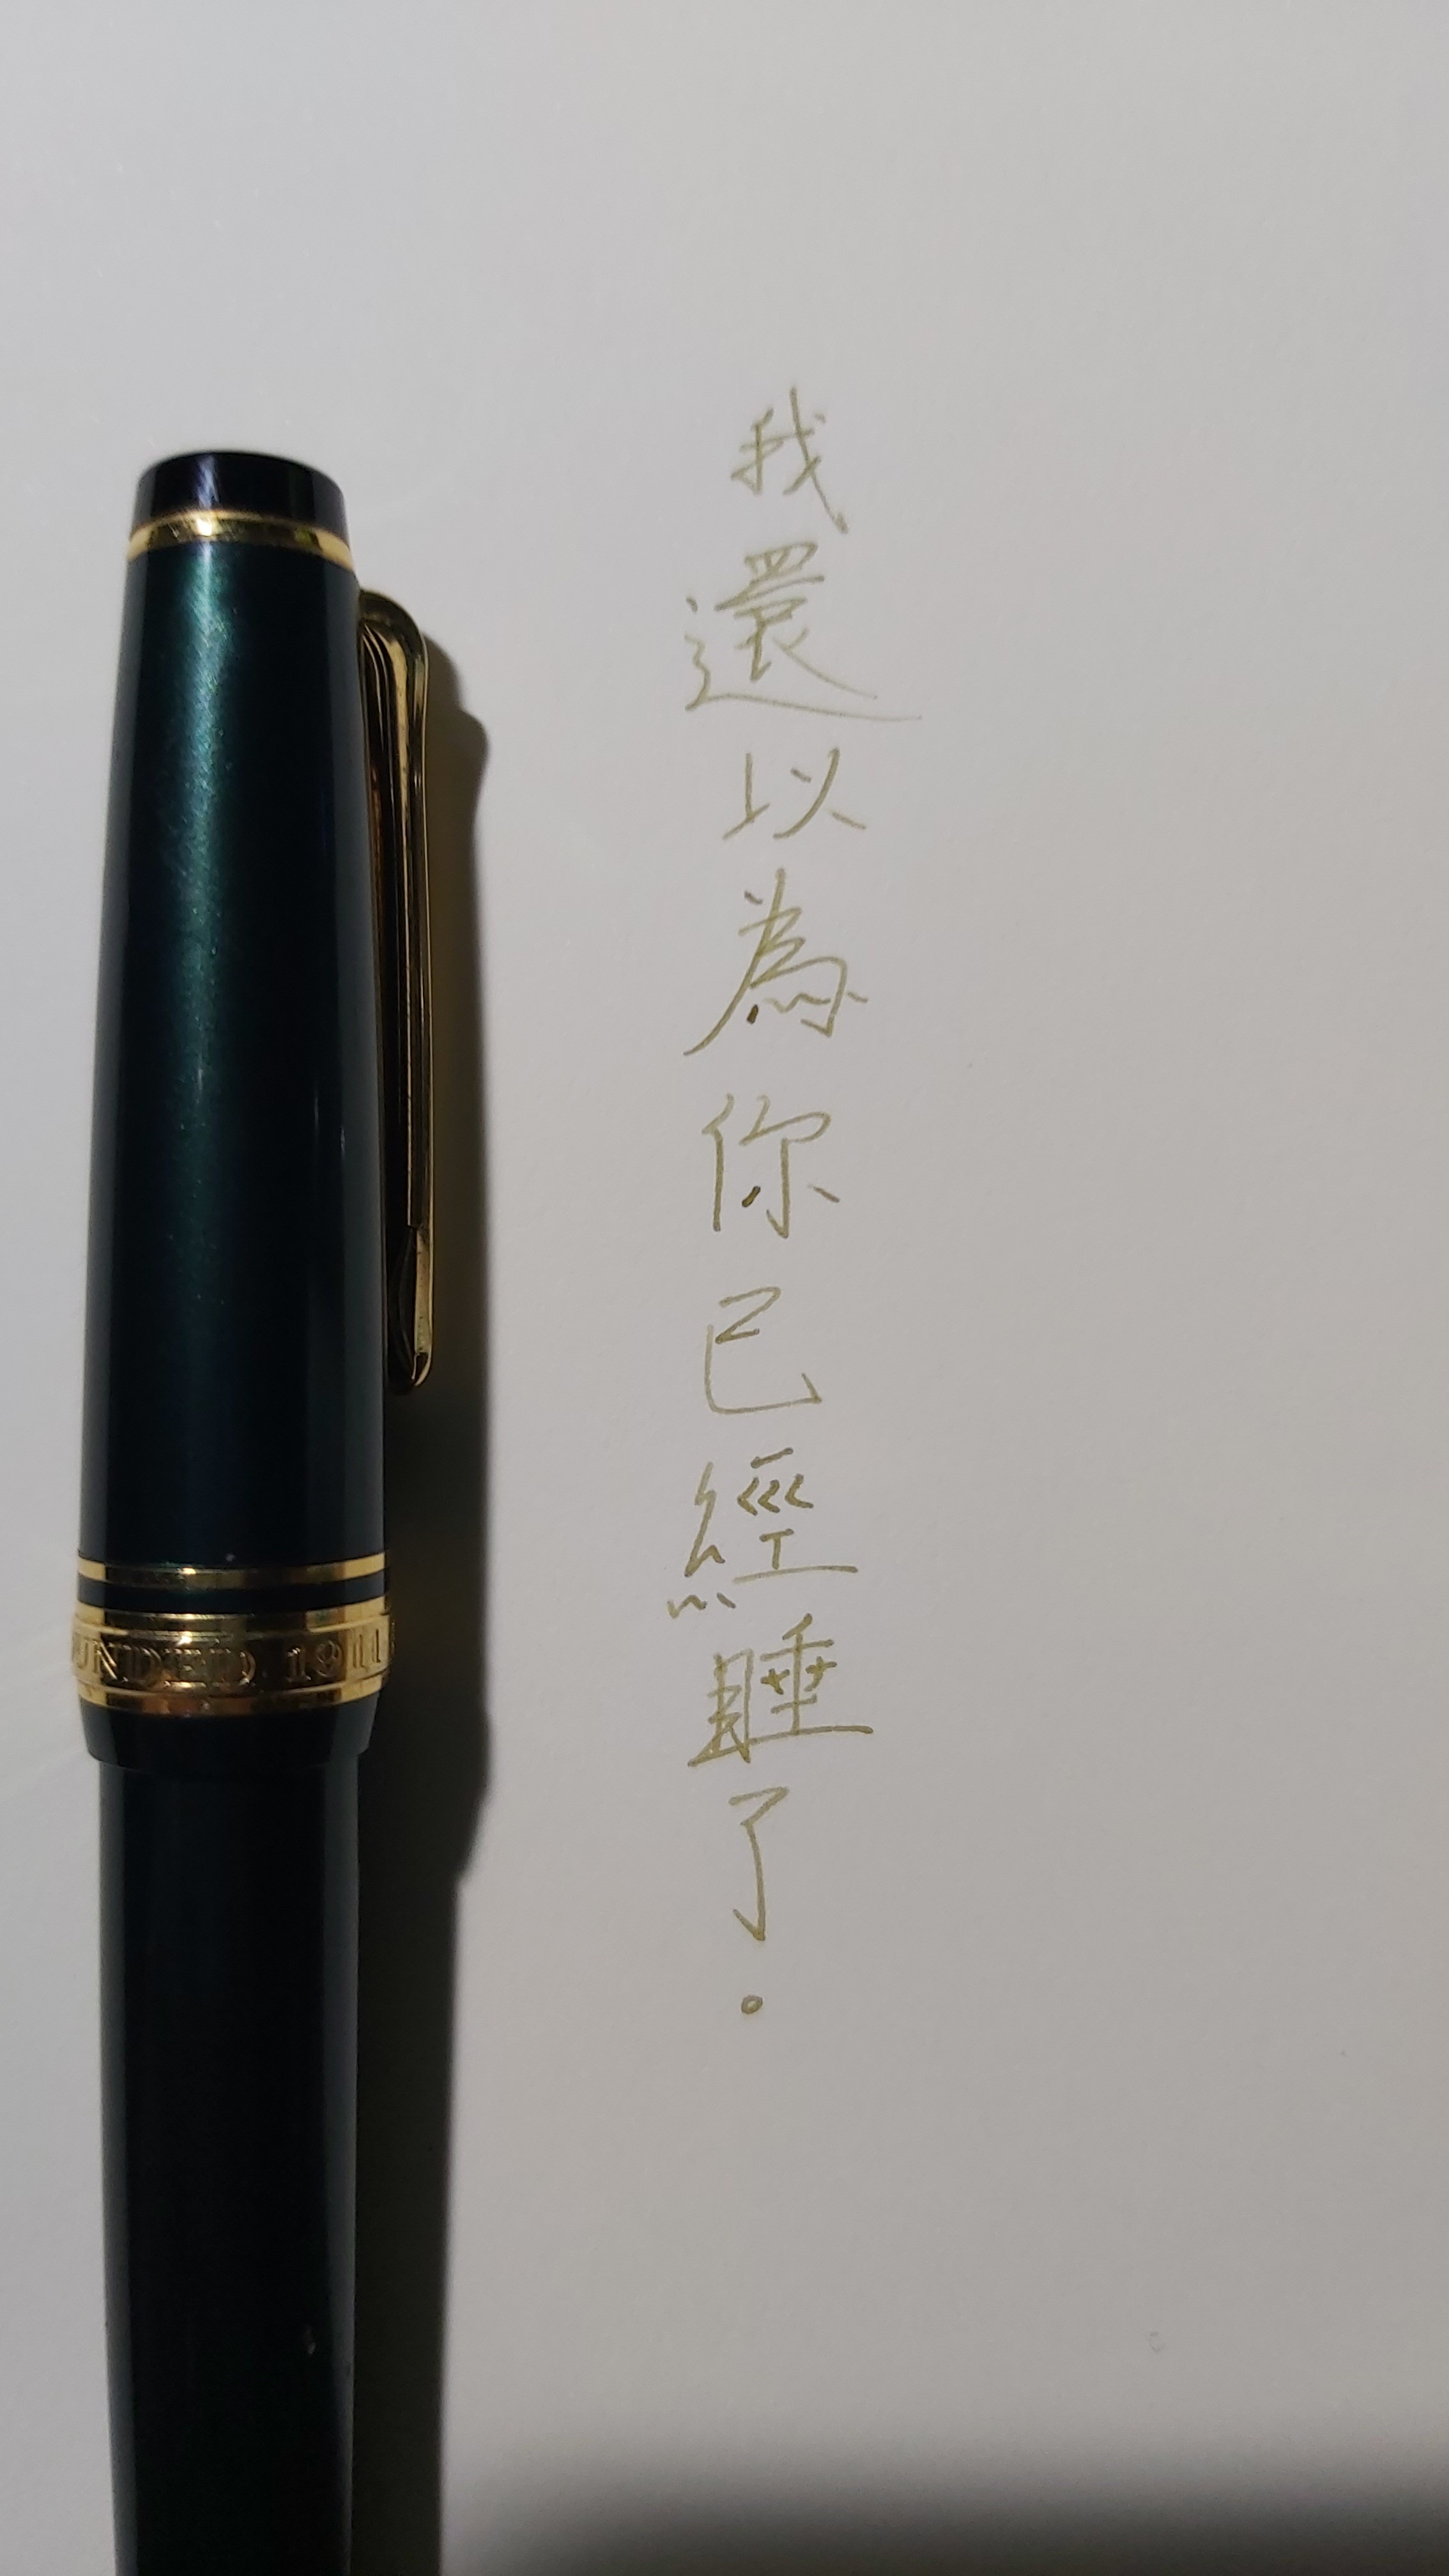 我還以為你已經睡了。
UNDED 1911